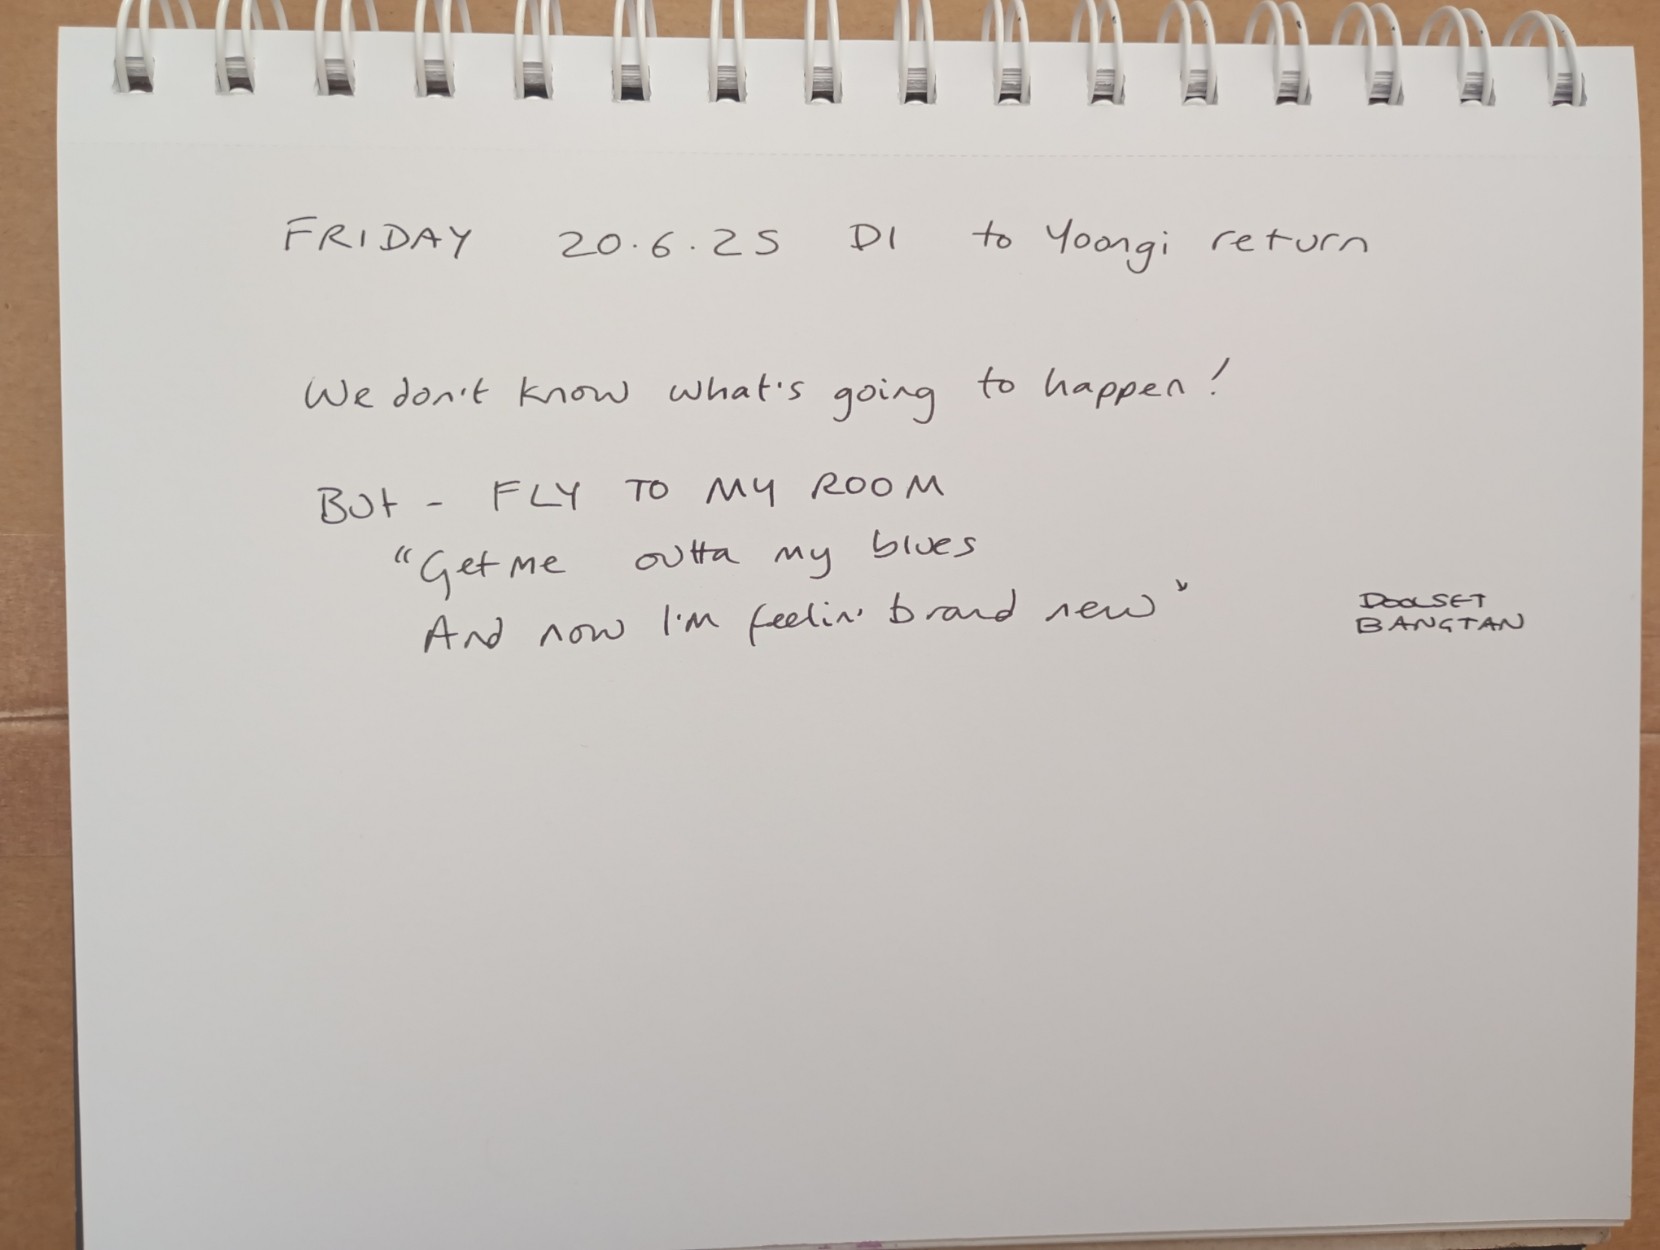 FRIDAY 20.6.25 D1 to Yoongi return
We don't know what's going to happen!
But - FLY TO MY ROOM
"Get me outta my blues
And now I'm feelin' brand new"
DOOLSET
BANGTAN